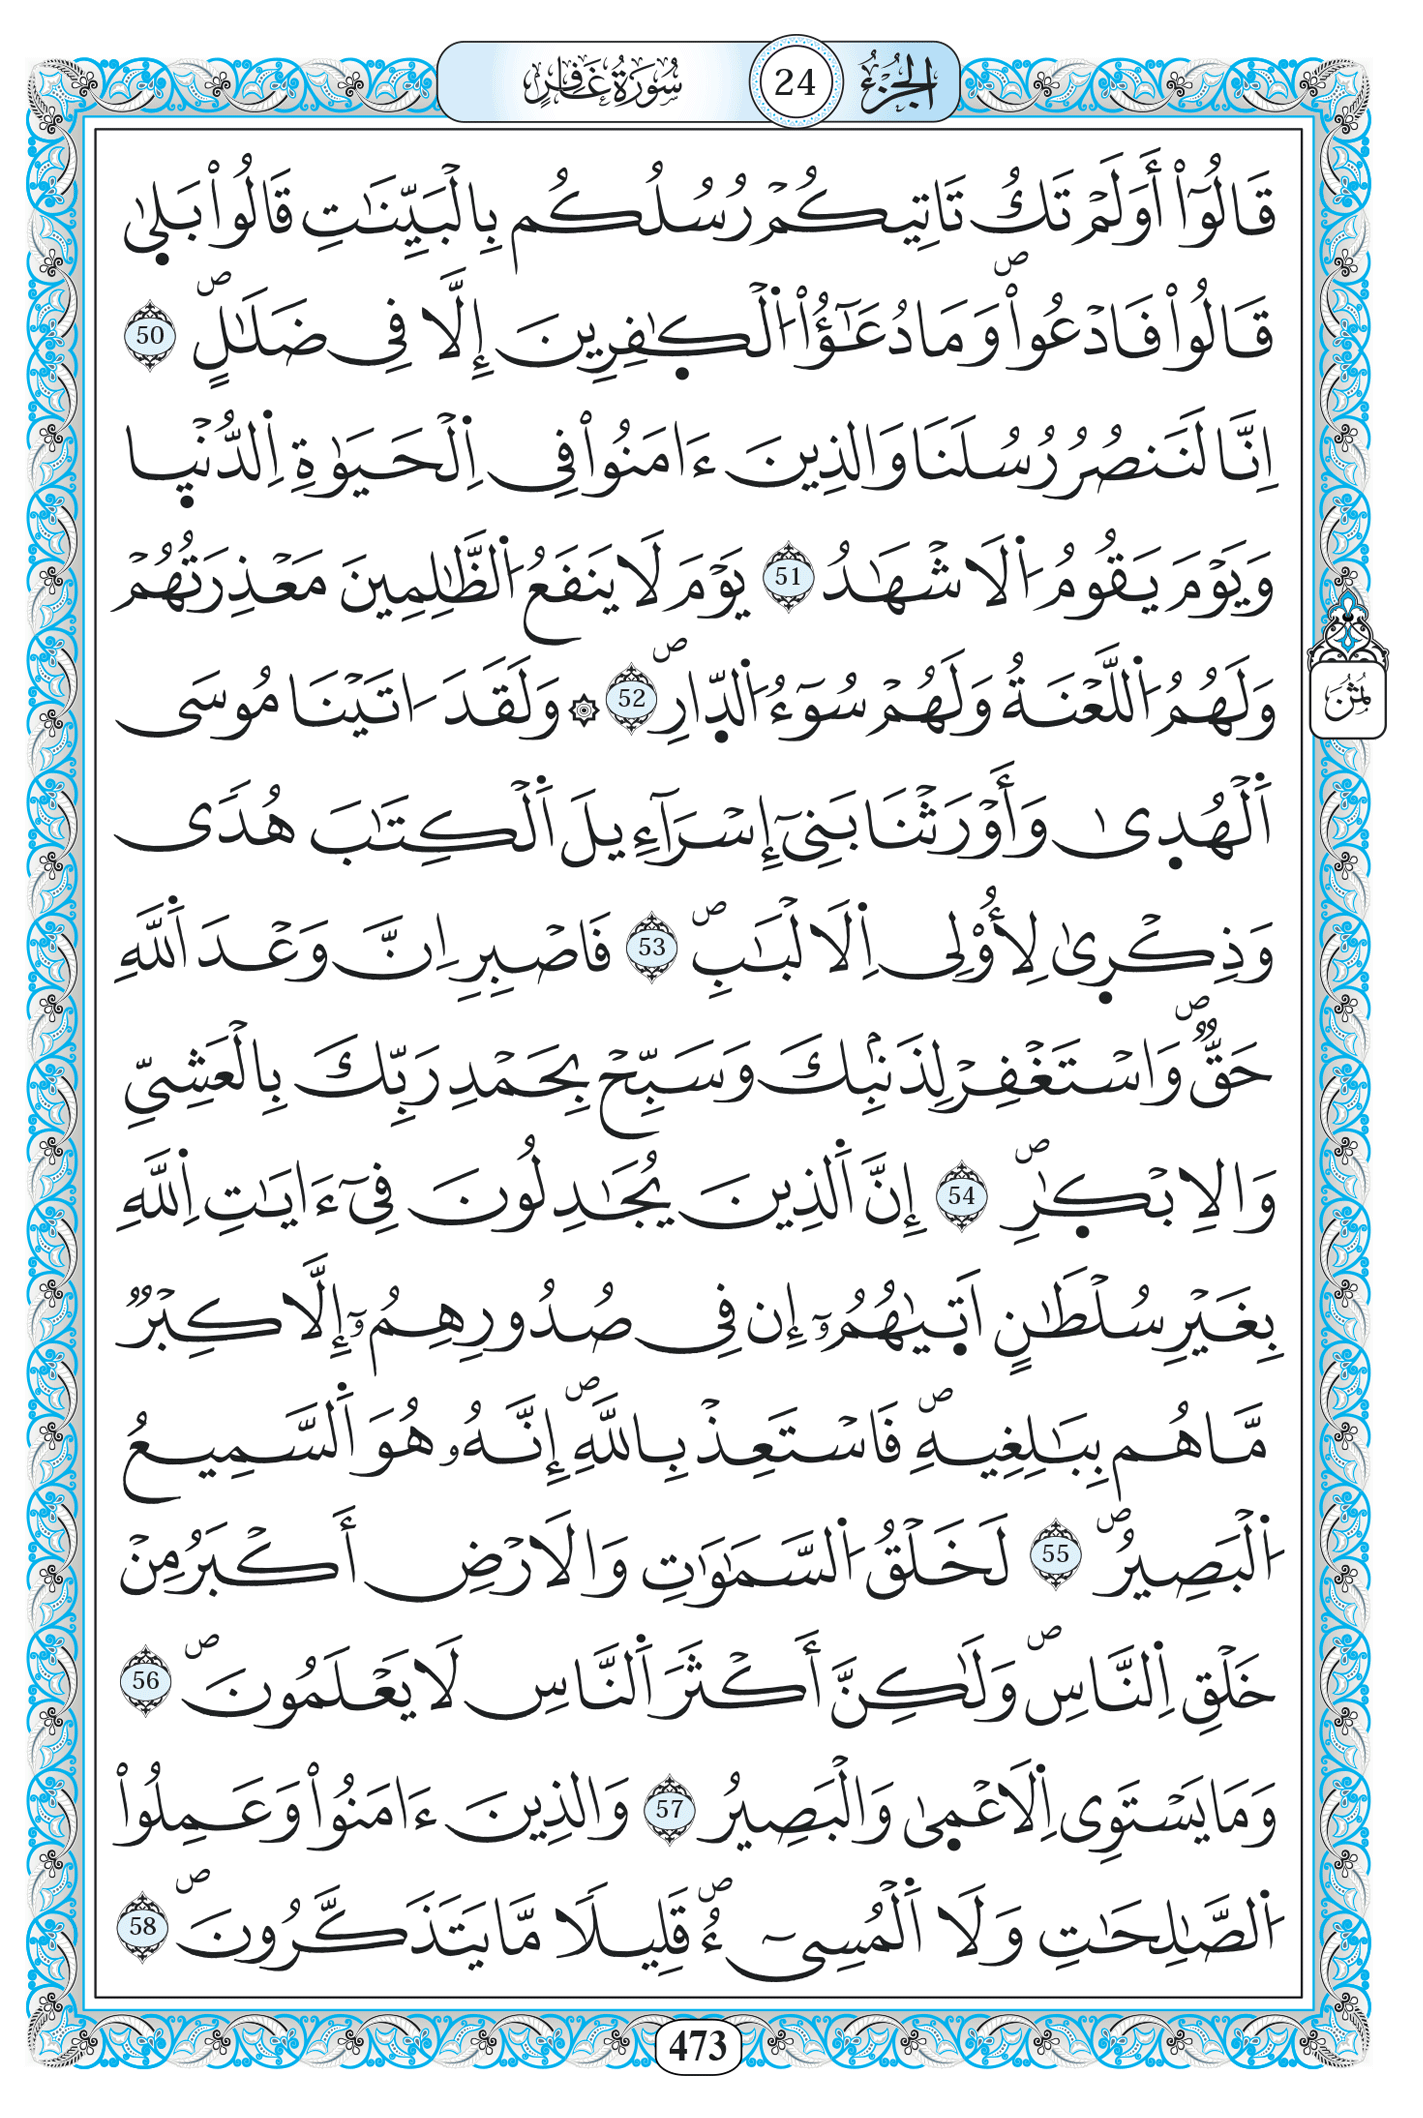 الجزء 24 سورة غافر
قَالُوٓاْ أَوَلَمْ تَكُ تَاتِيكُمْ رُسُلُكُم بِالْبَيِّنَٰتِ قَالُواْ بَل۪ىٰ
قَالُواْ فَادْعُواْۖ وَمَا دُعَٰٓؤُاْ اُ۬لْكٰ۪فِرِينَ إِلَّا فِى ضَلَٰلٍۖ 50
اِنَّا لَنَنصُرُ رُسُلَنَا وَالذِينَ ءَامَنُواْ فِى اِ۬لْحَيَوٰةِ اِ۬لدُّنْي۪ا
وَيَوْمَ يَقُومُ اُ۬لَاشْهَٰدُ 51 يَوْمَ لَا يَنفَعُ اُ۬لظَّٰلِمِينَ مَعْذِرَتُهُمْ
وَلَهُمُ اُ۬للَّعْنَةُ وَلَهُمْ سُوٓءُ اُ۬لدّ۪ارِۖ 52 ۞ وَلَقَدَ اٰتَيْنَا مُوسَى
ثمن
اَ۬لْهُد۪ىٰ وَأَوْرَثْنَا بَنِىٓ إِسْرَآءِيلَ اَ۬لْكِتَٰبَ هُدىً
وَذِكْر۪ىٰ لِأُوْلِى اِ۬لَالْبَٰبِۖ 53 فَاصْبِرِ اِنَّ وَعْدَ اَ۬للَّهِ
حَقٌّۖ وَاسْتَغْفِرْ لِذَنۢبِكَ وَسَبِّحْ بِحَمْدِ رَبِّكَ بِالْعَشِىِّ
وَالِابْكٰ۪رِۖ 54 إِنَّ اَ۬لذِينَ يُجَٰدِلُونَ فِىٓ ءَايَٰتِ اِ۬للَّهِ
بِغَيْرِ سُلْطَٰنٍ اَت۪يٰهُمُۥٓ إِن فِى صُدُورِهِمُۥٓ إِلَّا كِبْرٌ
مَّا هُم بِبَٰلِغِيهِۖ فَاسْتَعِذْ بِاللَّهِۖ إِنَّهُۥ هُوَ اَ۬لسَّمِيعُ
اُ۬لْبَصِيرُۖ 55 لَخَلْقُ اُ۬لسَّمَٰوَٰتِ وَالَارْضِ أَكْبَرُ مِنْ
خَلْقِ اِ۬لنَّاسِۖ وَلَٰكِنَّ أَكْثَرَ اَ۬لنَّاسِ لَا يَعْلَمُونَۖ 56
وَمَا يَسْتَوِى اِ۬لَاعْم۪ىٰ وَالْبَصِيرُ 57 وَالذِينَ ءَامَنُواْ وَعَمِلُواْ
اُ۬لصَّٰلِحَٰتِ وَلَا اَ۬لْمُسِىٓءُۖ قَلِيلًا مَّا يَتَذَكَّرُونَۖ 58
473